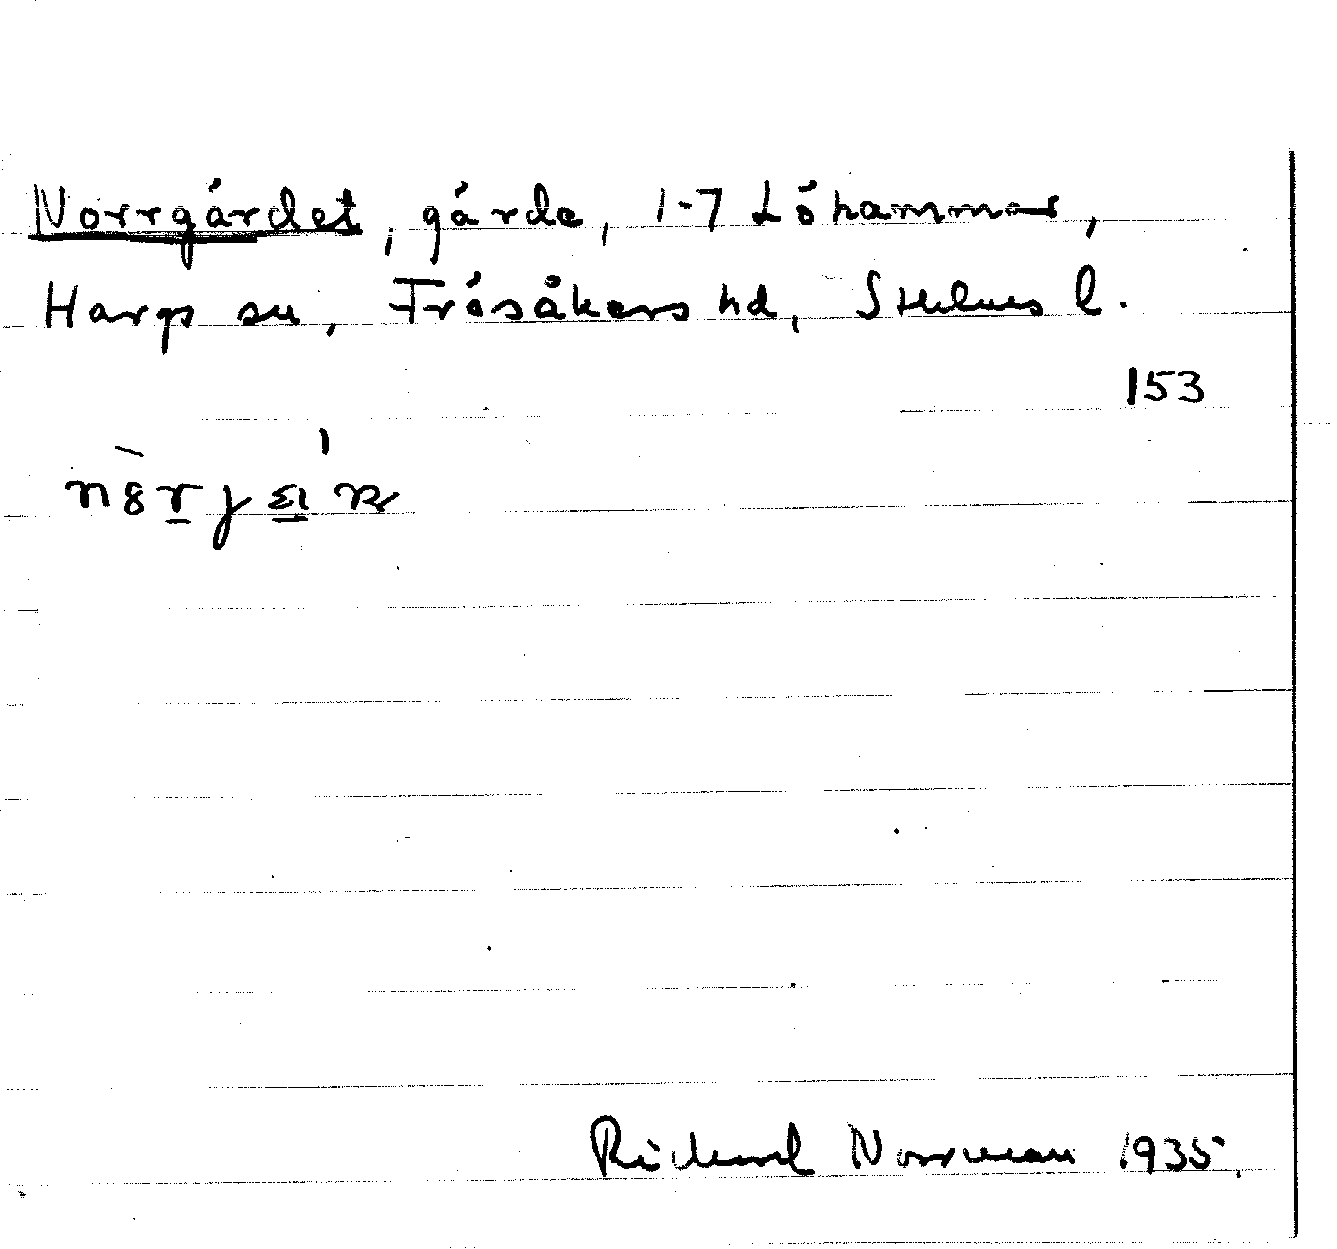 Norrgärdet, gärde, 1-7 Löhammar,
Hargs sn, Frösåkers hd, Sthlms l.
153
Rickard Norrman 1935.